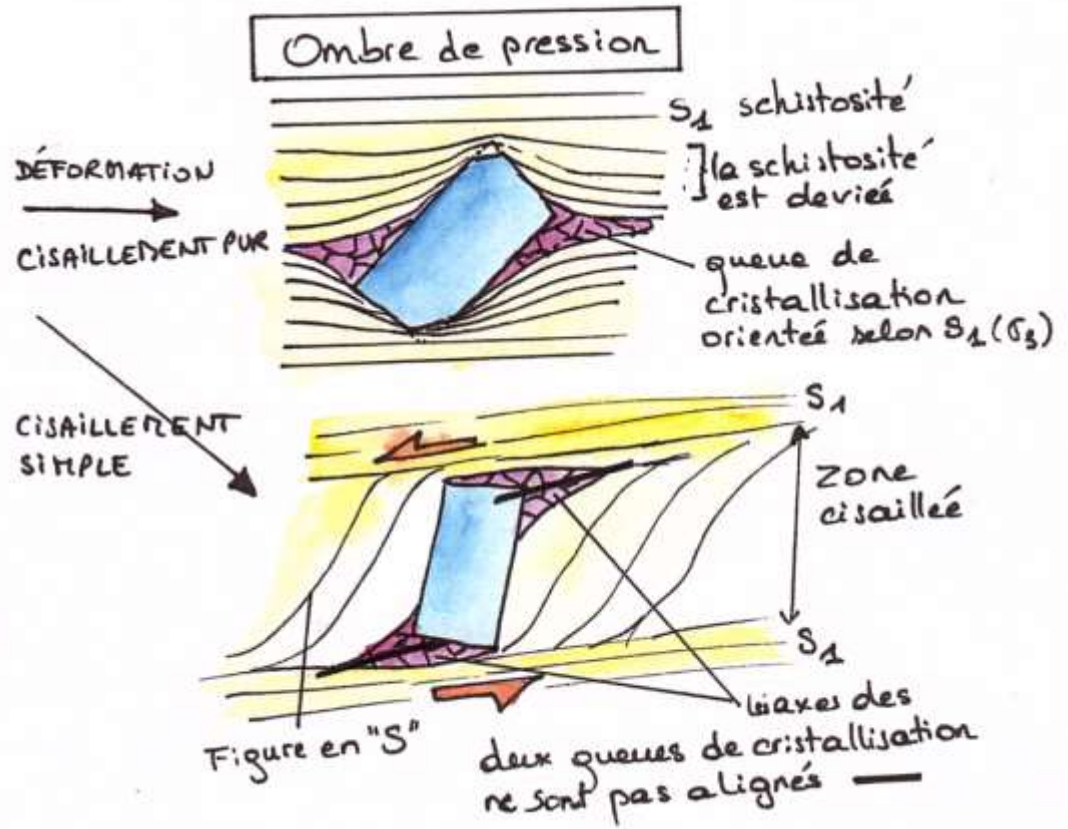 Ombre de pression
S1 schistosité
DÉFORMATION
la schistosité
est deviée
CISAILLEMENT PUR
queue de
cristallisation
orienteé selon S1 (σ3)
CISAILLEMENT
SIMPLE
S1
Zone
cisailleé
S1
Figure en "S"
les axes des
deux queues de cristallisation
ne sont pas alignés